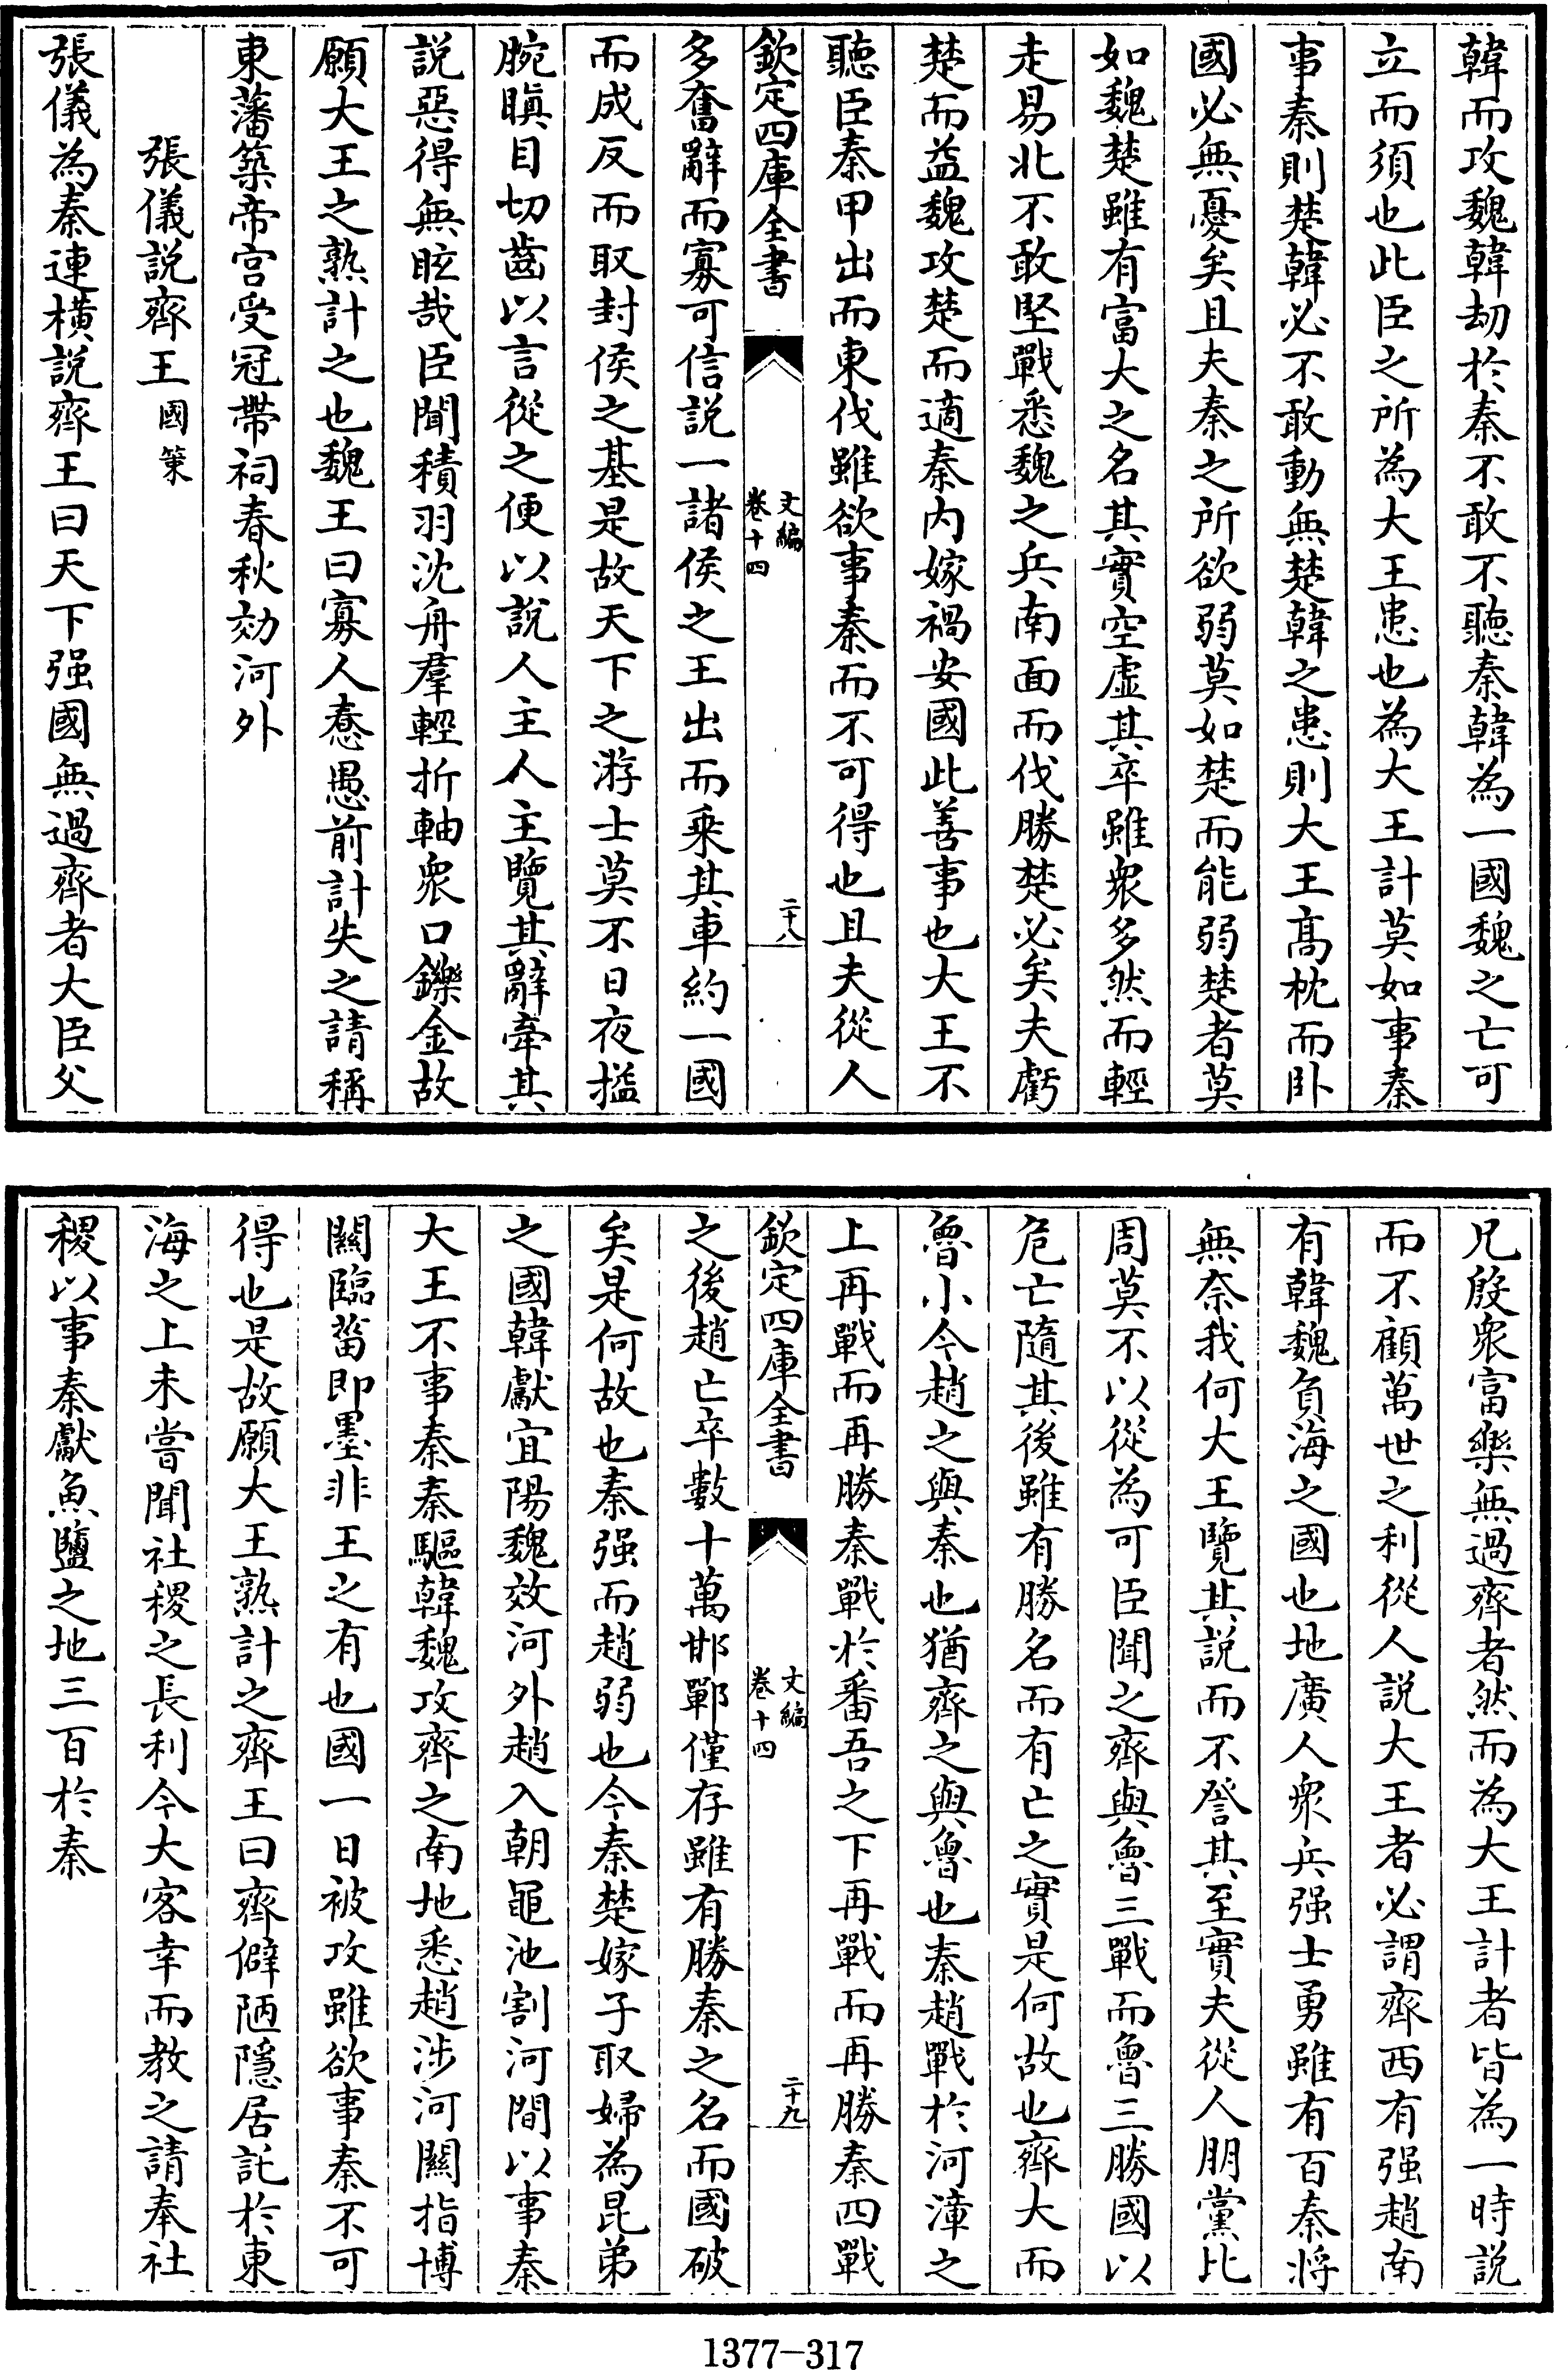 韓而攻魏韓劫於秦不敢不聽秦韓為一國魏之亡可
立而須也此臣之所為大王患也為大王計莫如事秦
事秦則楚韓必不敢動無楚韓之患則大王髙枕而卧
國必無憂矣且夫秦之所欲弱莫如楚而能弱楚者莫
如魏楚雖有富大之名其實空虛其卒雖衆多然而輕
走易北不敢堅戰悉魏之兵南面而伐勝楚必矣夫虧
楚而益魏攻楚而適秦内嫁禍安國此善事也大王不
聽臣秦甲出而東伐雖欲事秦而不可得也且夫從人
欽定四庫全書 文編 卷十四 二十八
多奮辭而寡可信説一諸侯之王出而乘其車約一國
而成反而取封侯之基是故天下之游士莫不日夜搤
腕瞋目切齒以言從之便以説人主人主覽其辭牽其
説惡得無眩哉臣聞積羽沈舟羣輕折軸衆口鑠金故
願大王之熟計之也魏王曰寡人惷愚前計失之請稱
東藩築帝宫受冠帶祠春秋効河外
張儀説齊王 國策
張儀為秦連橫説齊王曰天下强國無過齊者大臣父
兄殷衆富樂無過齊者然而為大王計者皆為一時説
而不顧萬世之利從人説大王者必謂齊西有强趙南
有韓魏負海之國也地廣人衆兵强士勇雖有百秦將
無奈我何大王覽其説而不詧其至實夫從人朋黨比
周莫不以從為可臣聞之齊與魯三戰而魯三勝國以
危亡隨其後雖有勝名而有亡之實是何故也齊大而
魯小今趙之與秦也猶齊之與魯也秦趙戰於河漳之
上再戰而再勝秦戰於番吾之下再戰而再勝秦四戰
欽定四庫全書 文編 卷十四 二十九
之後趙亡卒數十萬邯鄲僅存雖有勝秦之名而國破
矣是何故也秦强而趙弱也今秦楚嫁子取婦為昆弟
之國韓獻宜陽魏效河外趙入朝黽池割河間以事秦
大王不事秦秦驅韓魏攻齊之南地悉趙涉河關指博
關臨菑即墨非王之有也國一日被攻雖欲事秦不可
得也是故願大王熟計之齊王曰齊僻陋隱居託於東
海之上未嘗聞社稷之長利今大客幸而教之請奉社
稷以事秦獻魚鹽之地三百於秦
1377-317